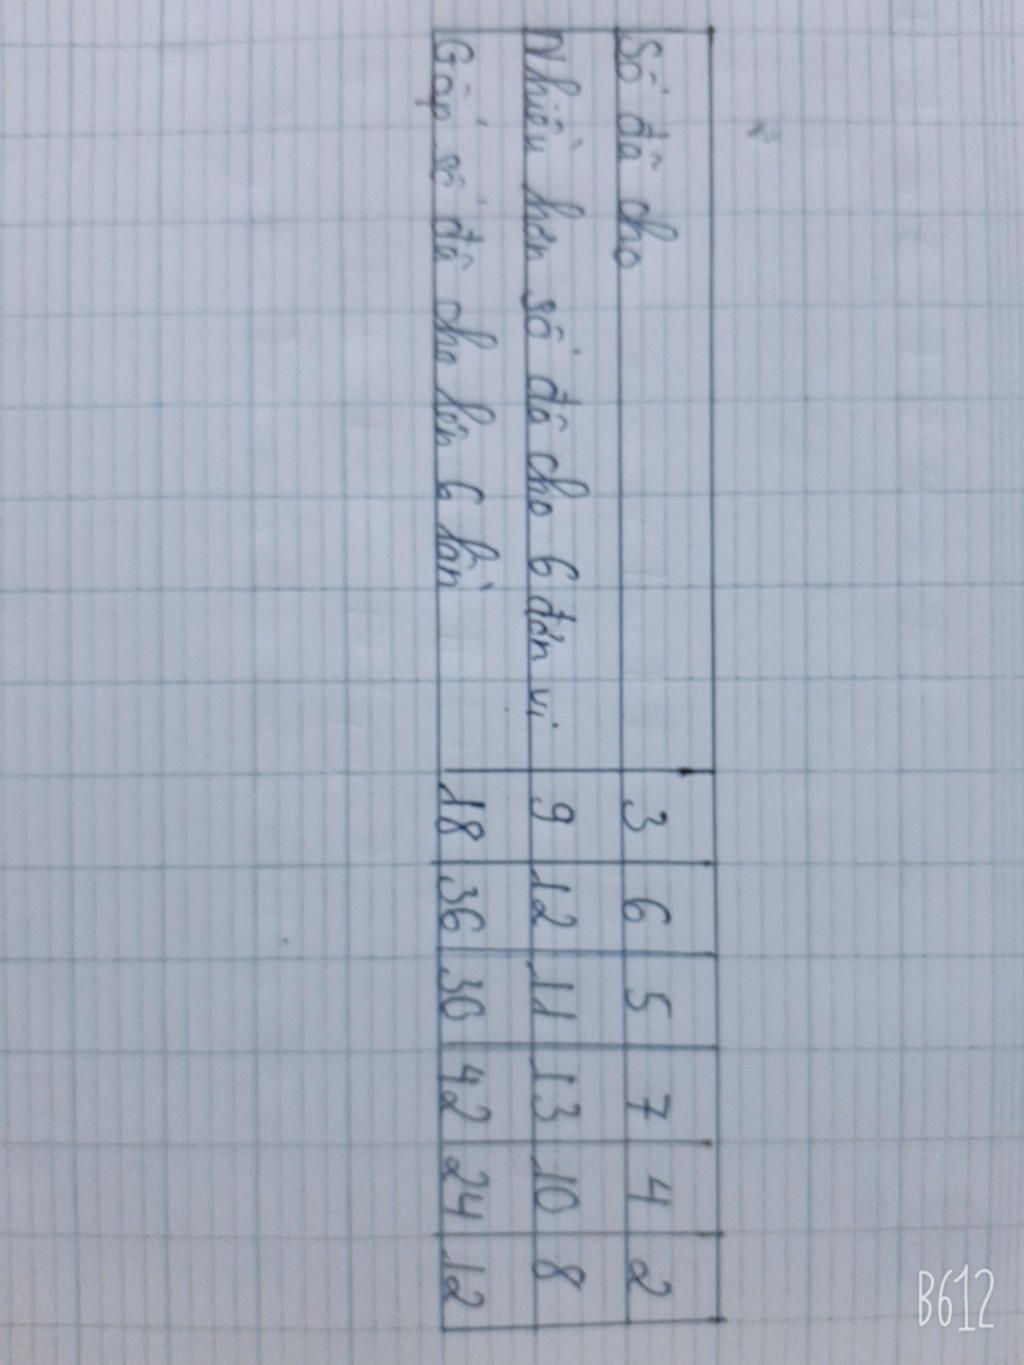 Số đã cho 3 6 5 7 4 2
Nhiều hơn số đã cho 6 đơn vị 9 12 11 13 10 8
Gấp số đã cho lên 6 lần 18 36 30 42 24 12
B612